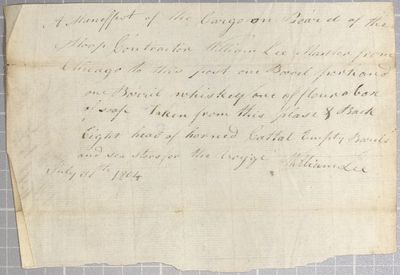 A Maneffest of the Cargo on Board of the
Sloop Contractor William Lee Master from
Chicago to this port one Barel pork and
one Barril whiskey one of flour a box
of soap taken from this plase & Back
Eight head of horned Cattal Empty Barels
and sea stors for the
July 31th 1804 William Lee